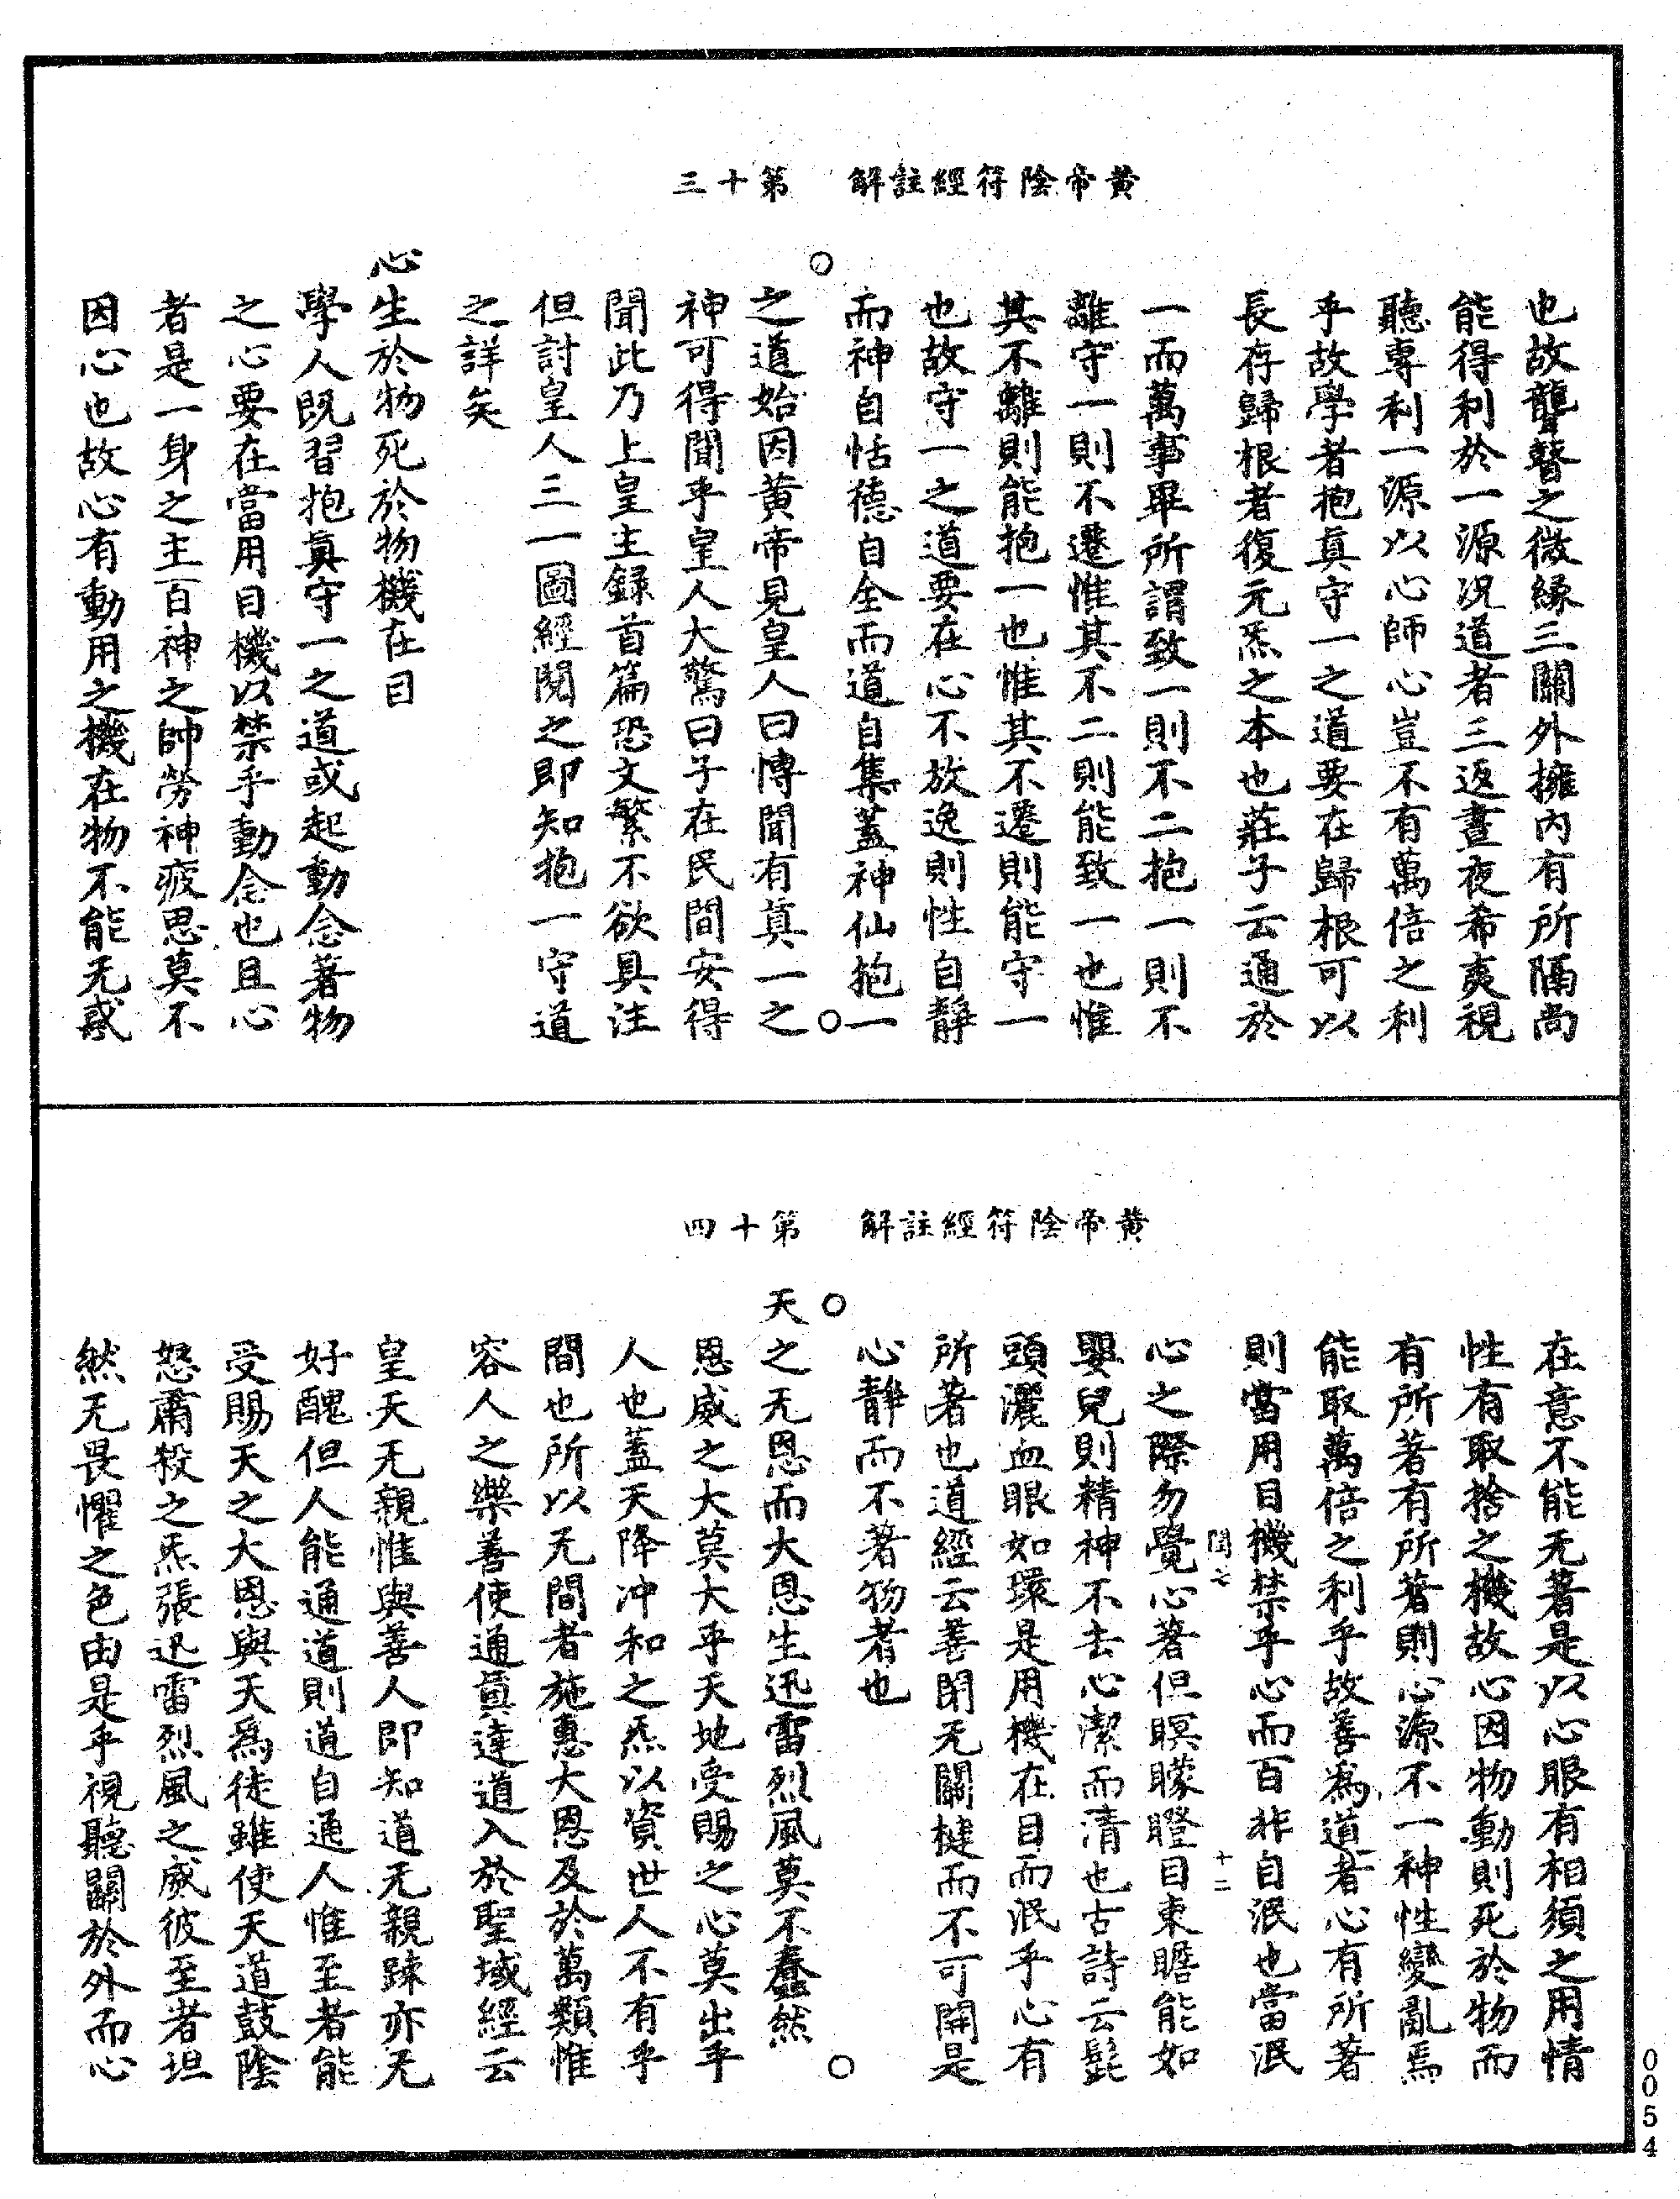 黃帝陰符經註解　第十三
也故聾瞽之微緣三關外擁內有所隔尚
能得利於一源況道者三返晝夜希夷視
聽專利一源以心師心豈不有萬倍之利
乎故學者抱真守一之道要在歸根可以
長存歸根者復元炁之本也莊子云通於
一而萬事畢所謂致一則不二抱一則不
離守一則不遷惟其不二則能致一也惟
其不離則能抱一也惟其不遷則能守一
也故守一之道要在心不放逸則性自靜
而神自恬德自全而道自集蓋神仙抱一
之道始因黃帝見皇人曰愽聞有真一之
神可得聞乎皇人大驚曰子在民間安得
聞此乃上皇主録首篇恐文繁不欲具注
但討皇人三一圖經閱之即知抱一守道
之詳矣
心生於物死於物機在目
學人既習抱真守一之道或起動念著物
之心要在當用目機以禁乎動念也且心
者是一身之主百神之帥勞神疲思莫不
因心也故心有動用之機在物不能无惑
黃帝陰符經註解　第十四
在意不能无著是以心眼有相須之用情
性有取捨之機故心因物動則死於物而
有所著有所著則心源不一神性變亂焉
能取萬倍之利乎故善為道者心有所著
則當用目機禁乎心而百非自泯也當泯
閏七　十二
心之際勿覺心著但瞑矇瞪目東瞻能如
嬰兒則精神不去心潔而清也古詩云髭
頭灑血眼如環是用機在目而泯乎心有
所著也道經云善閉无關楗而不可開是
心靜而不著物者也
天之无恩而大恩生迅雷烈風莫不蠢然
恩威之大莫大乎天地受賜之心莫出乎
人也蓋天降冲和之炁以資世人不有乎
間也所以无間者施惠大恩及於萬類惟
容人之樂善使通真達道入於聖域經云
皇天无親惟與善人即知道无親踈亦无
好醜但人能通道則道自通人惟至者能
受賜天之大恩與天為徒雖使天道鼓陰
怒肅殺之炁張迅雷烈風之威彼至者坦
然无畏懼之色由是乎視聽關於外而心
0054